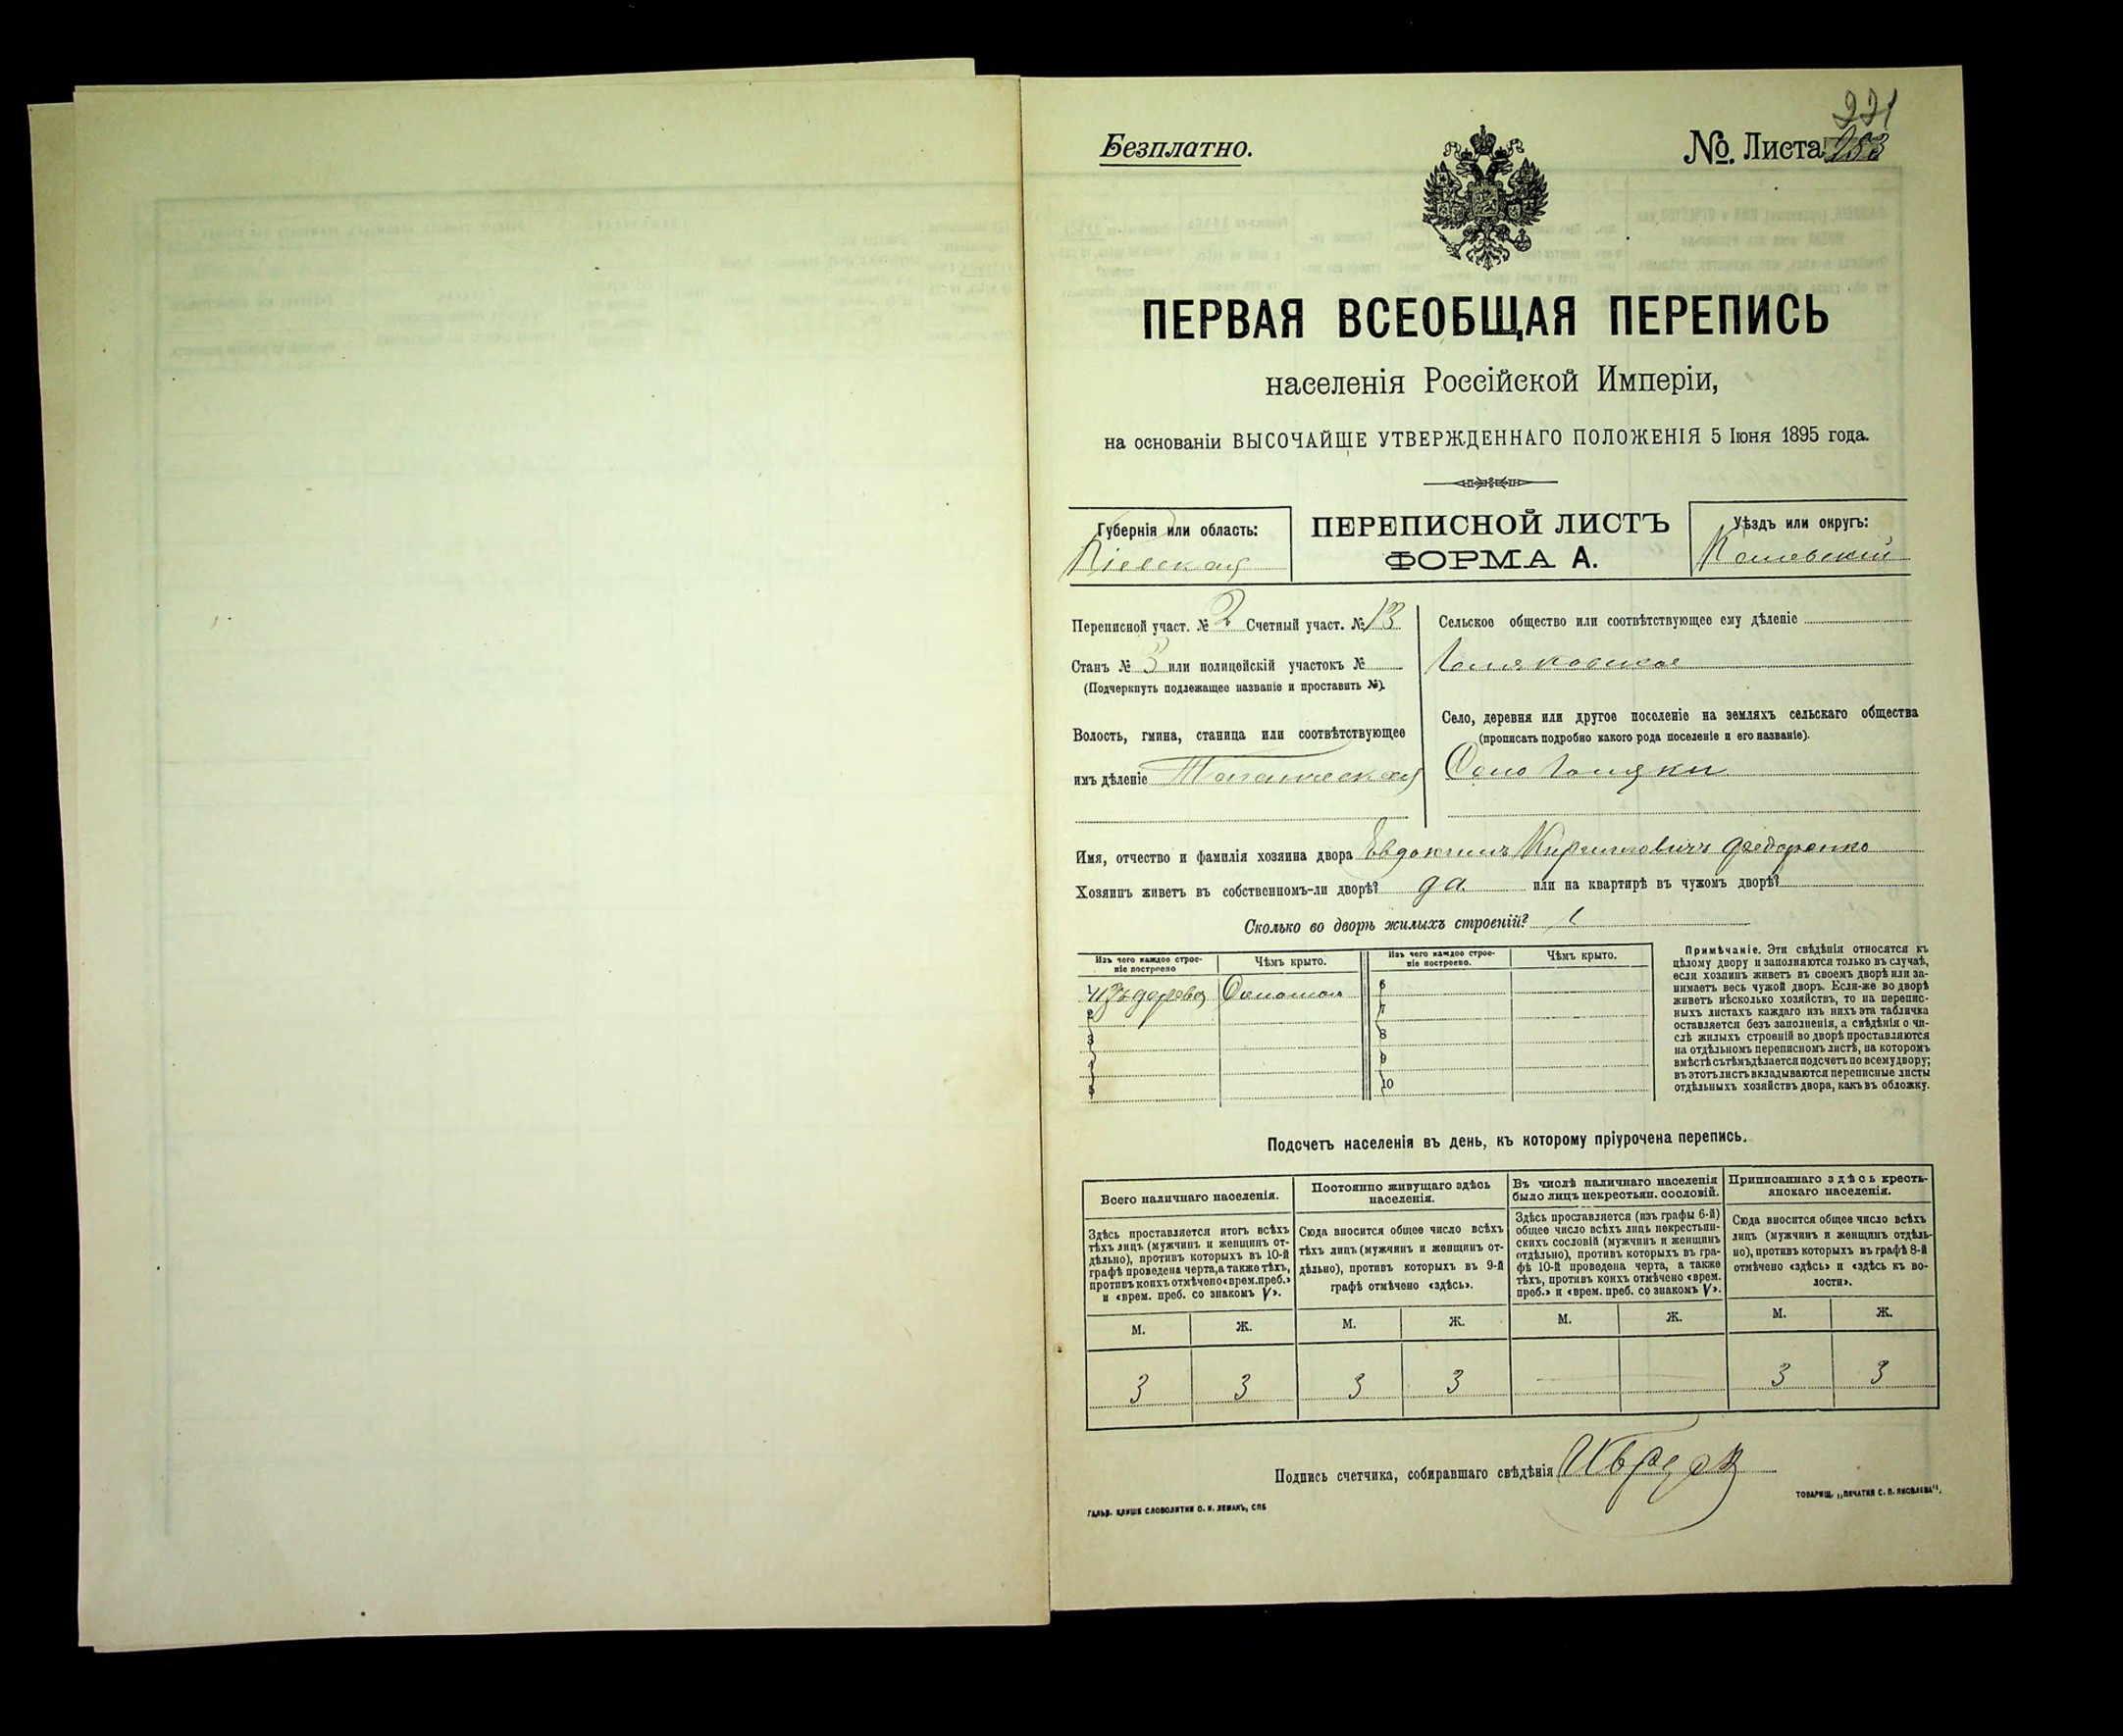 221
Безплатно.
№. Листа 183
ПЕРВАЯ ВСЕОБЩАЯ ПЕРЕПИСЬ
населенія Россійской Имперіи,
на основаніи ВЫСОЧАЙШЕ УТВЕРЖДЕННАГО ПОЛОЖЕНІЯ 5 Іюня 1895 года.
Губернія или область:
Кіевская
ПЕРЕПИСНОЙ ЛИСТЪ
ФОРМА А.
Уѣздъ или округъ:
Каневскій
Переписной участ. № 2 Счетный участ. № 13
Станъ № 3 или полицейскій участокъ №
(Подчеркнуть подлежащее названіе и проставить №).
Волость, гмина, станица или соотвѣтствующее
имъ дѣленіе
Сельское общество или соотвѣтствующее ему дѣленіе
Село, деревня или другое поселеніе на земляхъ сельскаго общества
(прописать подробно какого рода поселеніе и его названіе).
Село
Имя, отчество и фамилія хозяина двора Евдокимъ Кирилловичъ Федоренко
Хозяинъ живетъ въ собственномъ-ли дворѣ? да или на квартирѣ въ чужомъ дворѣ?
Сколько во дворѣ жилыхъ строеній? 1
Изъ чего каждое строе-
ніе построено
Чѣмъ крыто.
Изъ чего каждое строе-
ніе построено.
Чѣмъ крыто.
1 Изъ дерева Соломою
2
3
4
5
6
7
8
9
10
Примѣчаніе. Эти свѣдѣнія относятся къ
цѣлому двору и заполняются только въ случаѣ,
если хозяинъ живетъ въ своемъ дворѣ или за-
нимаетъ весь чужой дворъ. Если-же во дворѣ
живетъ нѣсколько хозяйствъ, то на перепис-
ныхъ листахъ каждаго изъ нихъ эта табличка
оставляется безъ заполненія, а свѣдѣнія о чи-
слѣ жилыхъ строеній во дворѣ проставляются
на отдѣльномъ переписномъ листѣ, на которомъ
вмѣстѣ съ тѣмъ дѣлается подсчетъ по всему двору;
въ этотъ листъ вкладываются переписные листы
отдѣльныхъ хозяйствъ двора, какъ въ обложку.
Подсчетъ населенія въ день, къ которому пріурочена перепись.
Всего наличнаго населенія.
Здѣсь проставляется итогъ всѣхъ
тѣхъ лицъ (мужчинъ и женщинъ от-
дѣльно), противъ которыхъ въ 10-й
графѣ проведена черта, а также тѣхъ,
противъ коихъ отмѣчено «врем. преб.»
и «врем. преб. со знакомъ V».
Постоянно живущаго здѣсь
населенія.
Сюда вносится общее число всѣхъ
тѣхъ лицъ (мужчинъ и женщинъ от-
дѣльно), противъ которыхъ въ 9-й
графѣ отмѣчено «здѣсь».
Въ числѣ наличнаго населенія
было лицъ некрестьян. сословій.
Здѣсь проставляется (изъ графы 6-й)
общее число всѣхъ лицъ некрестьян-
скихъ сословій (мужчинъ и женщинъ
отдѣльно), противъ которыхъ въ гра-
фѣ 10-й проведена черта, а также
тѣхъ, противъ коихъ отмѣчено «врем.
преб.» и «врем. преб. со знакомъ V».
Приписаннаго здѣсь кресть-
янскаго населенія.
Сюда вносится общее число всѣхъ
лицъ (мужчинъ и женщинъ отдѣль-
но), противъ которыхъ въ графѣ 8-й
отмѣчено «здѣсь» и «здѣсь къ во-
лости».
М. Ж. М. Ж. М. Ж. М. Ж.
3 3 3 3 3 3
Подпись счетчика, собиравшаго свѣдѣнія
ГАЛЬВ. КЛИШЕ СЛОВОЛИТНИ О. И. ЛЕМАНЪ, СПБ
ТОВАРИЩ. „ПЕЧАТНЯ С. П. ЯКОВЛЕВА".